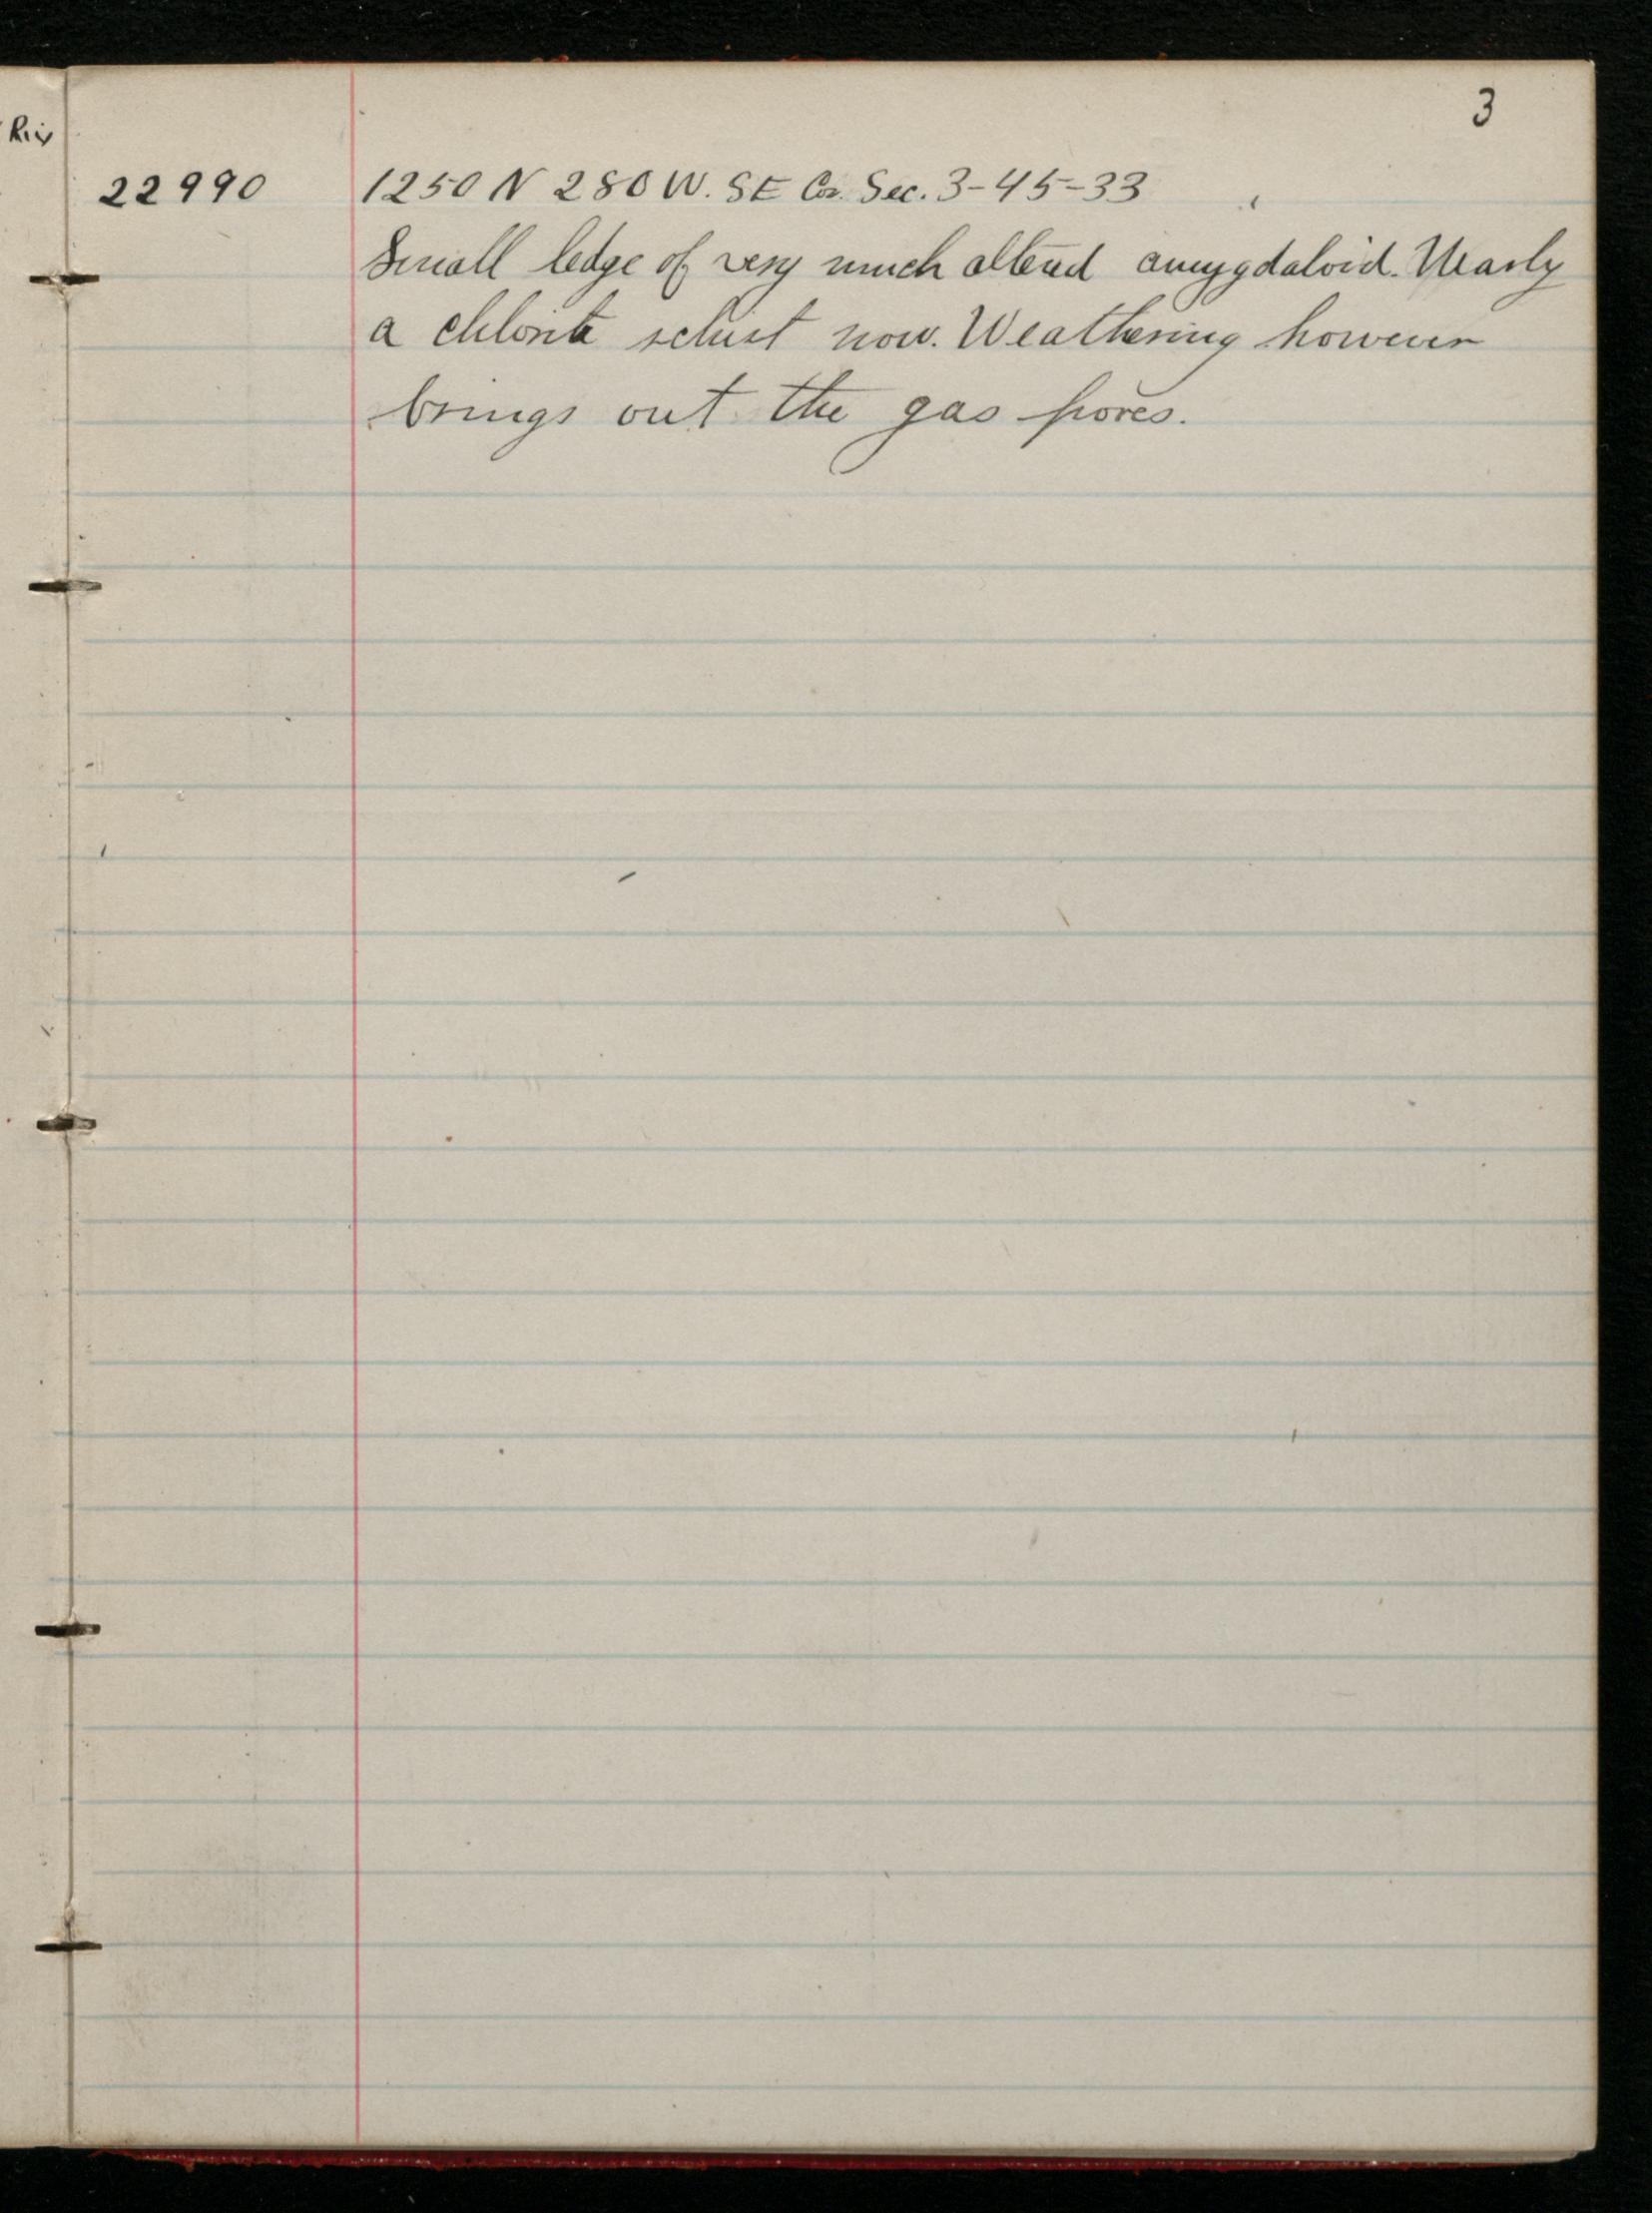 3
Riv
22990 1250 N 280 W. SE Cor. Sec. 3-45-33
Small ledge of very much altered amygdaloid. Nearly
a chlorite schist now. Weathering however
brings out the gas pores.